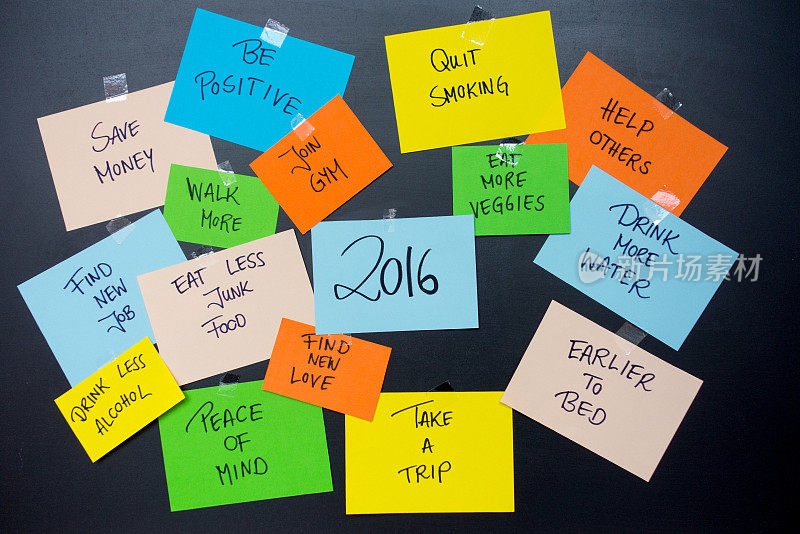 BE
POSITIVE
QUIT
SMOKING
HELP
OTHERS
SAVE
MONEY
JOIN
GYM
WALK
MORE
EAT
MORE
VEGGIES
DRINK
MORE
WATER
FIND
NEW
JOB
EAT LESS
JUNK
FOOD
2016
FIND
NEW
LOVE
EARLIER
TO
BED
DRINK LESS
ALCOHOL
PEACE
OF
MIND
TAKE
A
TRIP
iStock
视觉中国